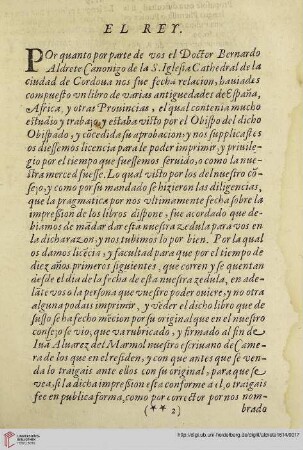 EL REY.
POr quanto por parte de vos el Doctor Bernardo
Aldrete Canonigo de la S. Iglesia Cathedral de la
ciudad de Cordoua nos fue fecha relacion, hauiades
compuesto vn libro de varias antiguedades de España,
Africa, y otras Prouincias, el qual contenia mucho
estudio y trabajo, y estaba visto por el Obispo del dicho
Obispado, y cōcedida su aprobacion; y nos supplicastes
os diessemos licencia para le poder imprimir, y priuile-
gio por el tiempo que fuessemos seruido, o como la nue-
stra merced fuesse. Lo qual visto por los del nuestro cō-
sejo, y como por su mandado se hizieron las diligencias,
que la pragmatica por nos vltimamente fecha sobre la
impresion de los libros dispone, fue acordado que de-
biamos de mādar dar esta nuestra zedula para vos en
la dicha razon, y nos tubimos lo por bien. Por la qual
os damos licēcia, y facultad para que por el tiempo de
diez años primeros siguientes, que corren y se quentan
desde el dia de la fecha de esta nuestra zedula, en ade-
lāte vos o la persona que vuestro poder ouiere, y no otra
alguna podais imprimir, y vēder el dicho libro que de
susso se ha fecho mēcion por su original que en el nuestro
consejo se vio, que va rubricado, y firmado al fin de
Iuā Aluarez del Marmol nuestro escriuano de Came-
ra de los que en el residen, y con que antes que se ven-
da lo traigais ante ellos con su original, para que se
vea, si la dicha impresion esta conforme a el, o traigais
fee en publica forma, como por corrector por nos nom-
(** 2) brado
UNIVERSITÄTS-
BIBLIOTHEK
HEIDELBERG
http://digi.ub.uni-heidelberg.de/diglit/aldrete1614/0017